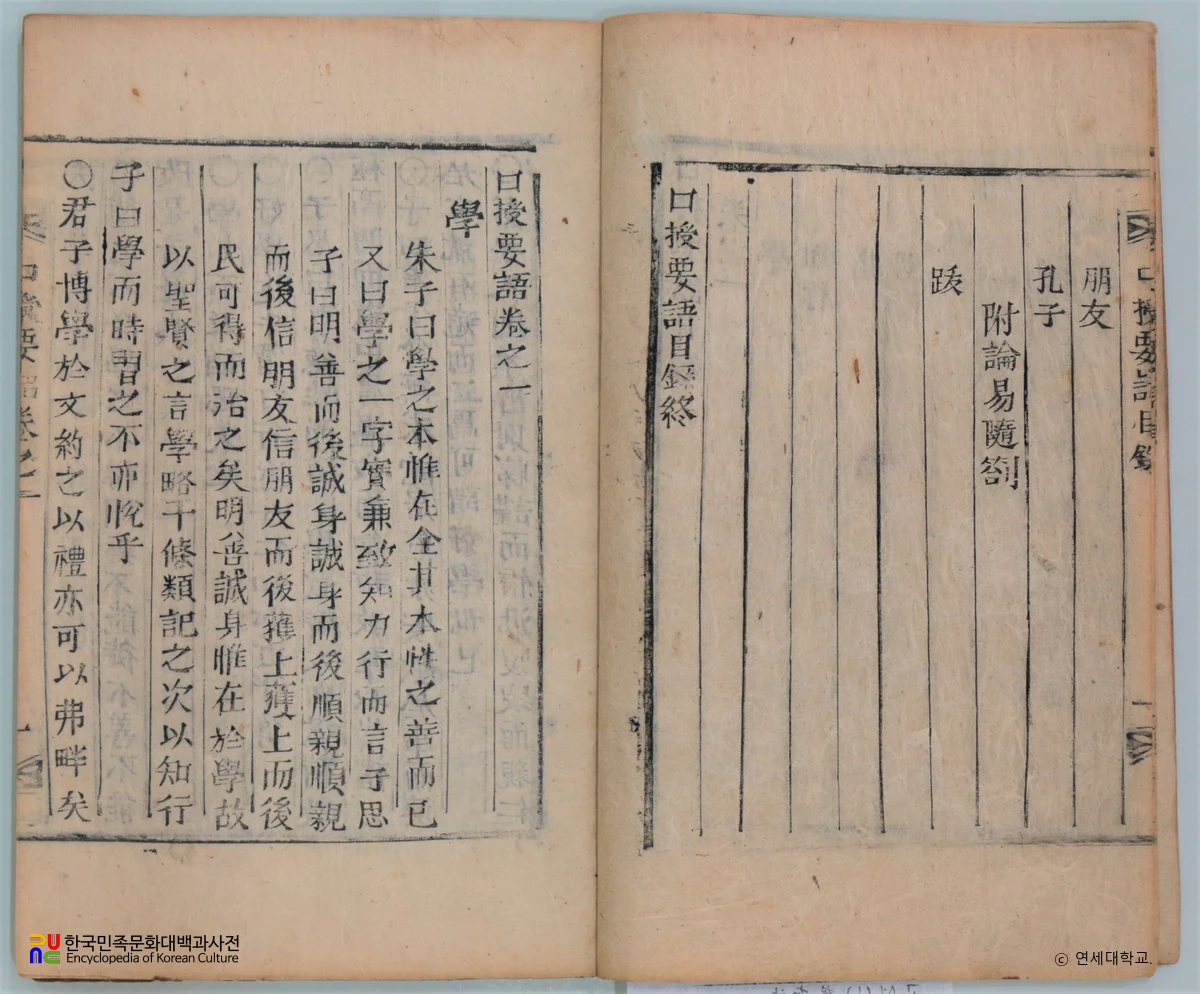 口授要語目錄
朋友
孔子
附論易隨劄
跋
口授要語目錄終
口授要語卷之一
學
朱子曰學之本惟在全其本性之善而已
又曰學之一字實兼致知力行而言子思
子曰明善而後誠身誠身而後順親順親
而後信朋友信朋友而後獲上獲上而後
民可得而治之矣明善誠身惟在於學故
以聖賢之言學略干條類記之次以知行
子曰學而時習之不亦悅乎
〇君子博學於文約之以禮亦可以弗畔矣
口授要語卷之一
한국민족문화대백과사전
Encyclopedia of Korean Culture
© 연세대학교.